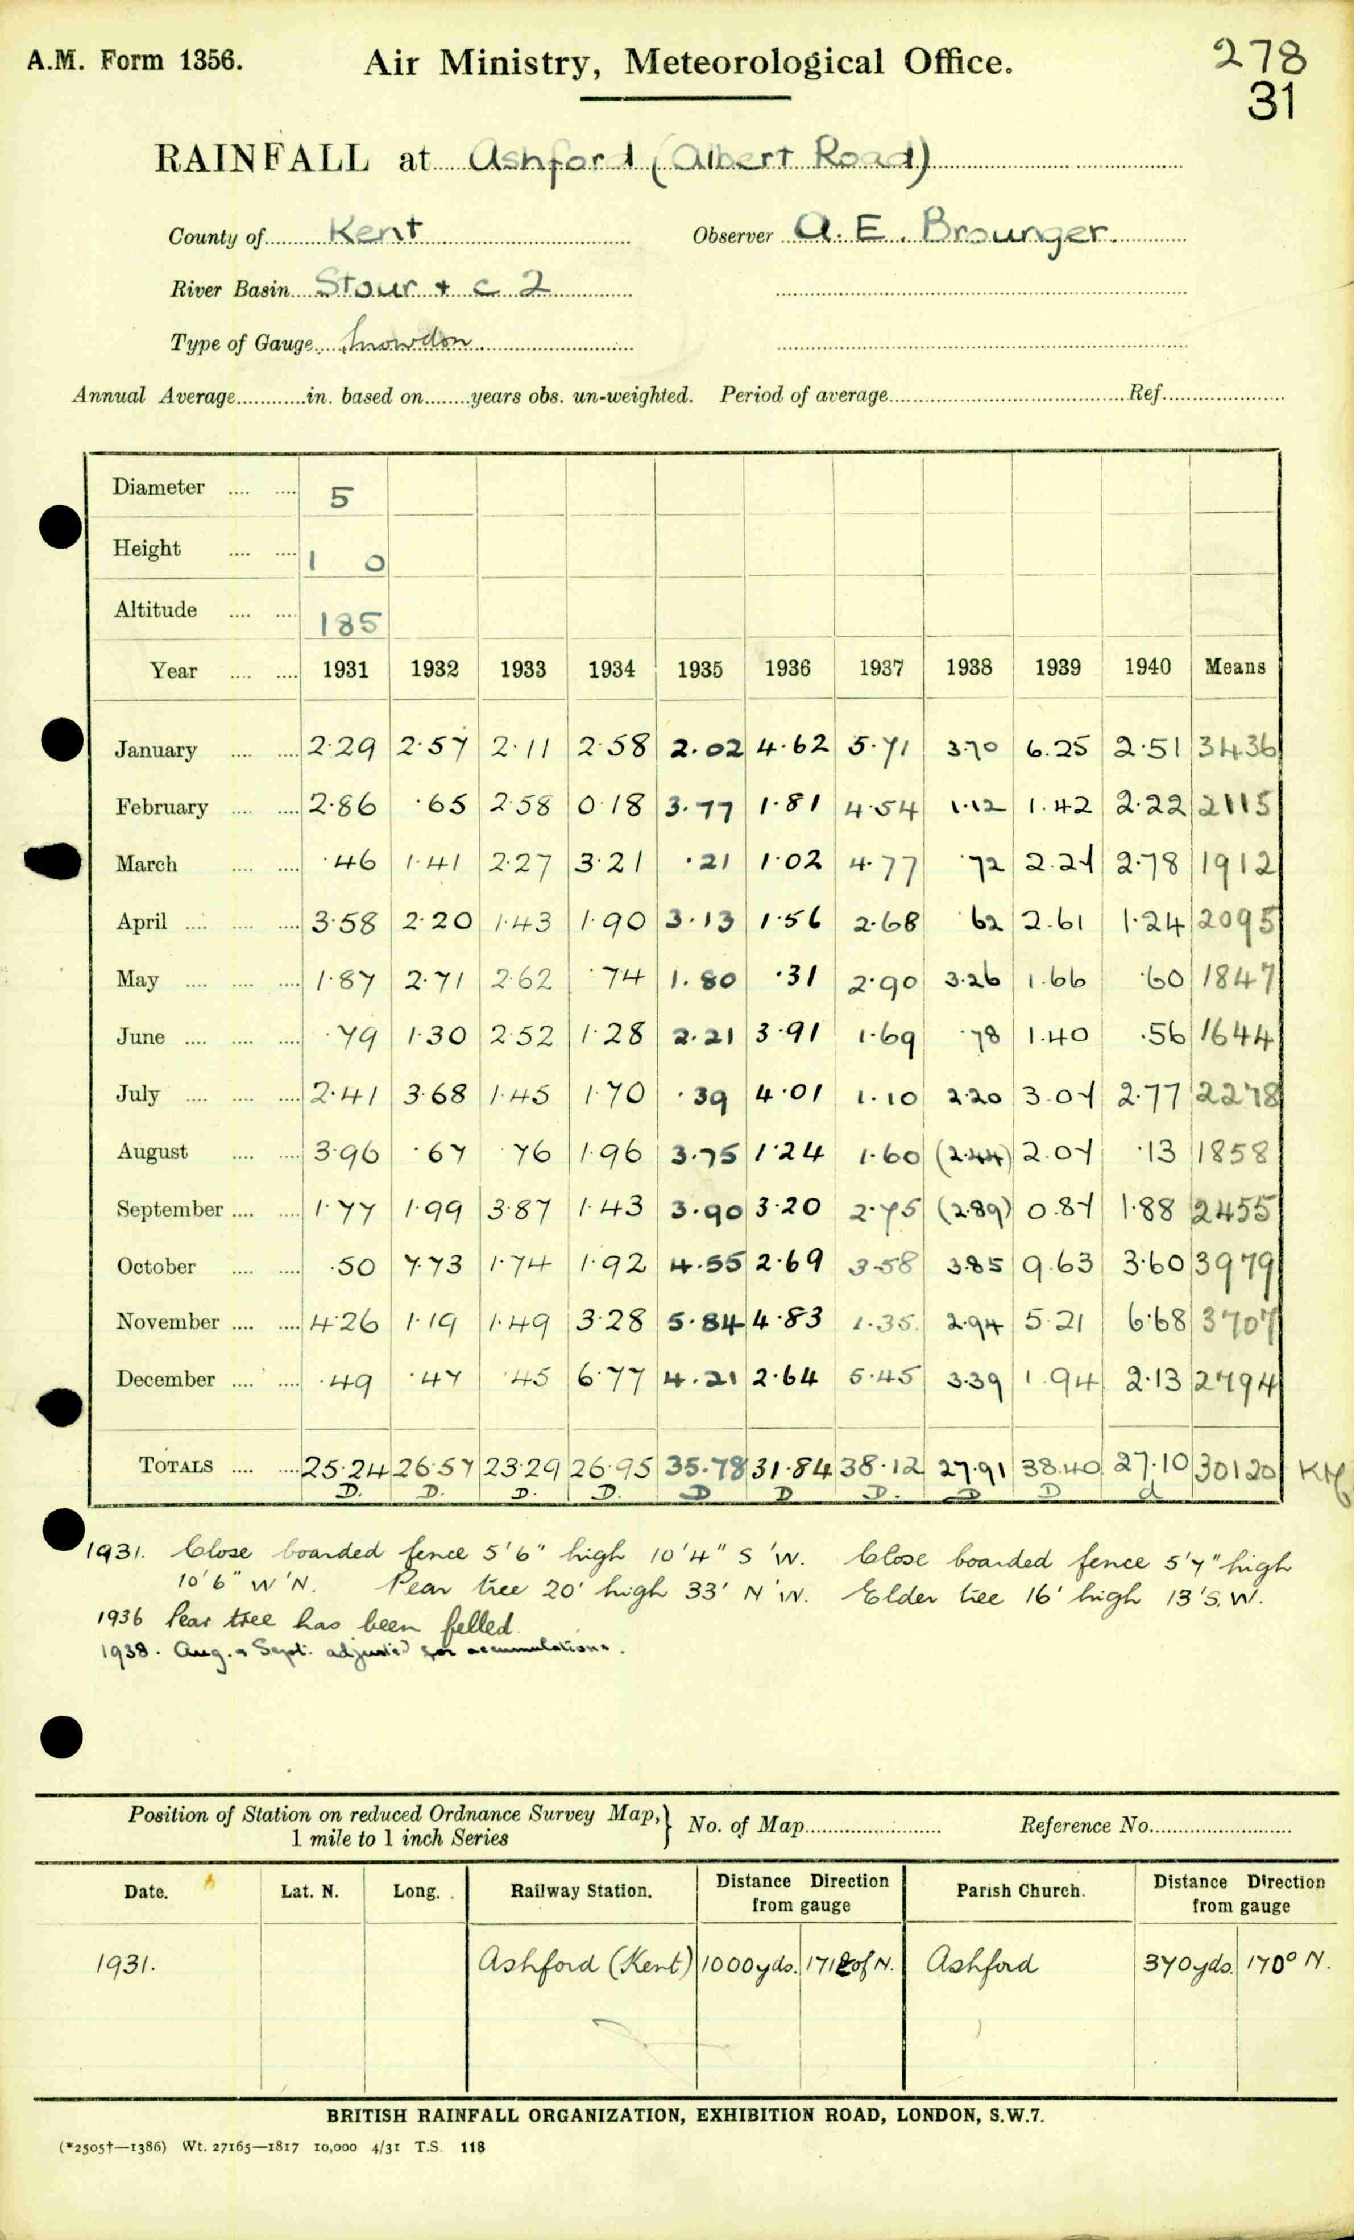 A.M. Form 1356.
Air Ministry, Meteorological Office.
278
31
RAINFALL at Ashford (Albert Road)
County of Kent Observer A. E. Brounger.
River Basin Stour + c 2
Type of Gauge Snowdon
Annual Average............in. based on........years obs. un-weighted. Period of average.............Ref.............
Diameter .... .... 5
Height .... .... 1 0
Altitude .... .... 185
Year .... .... 1931 1932 1933 1934 1935 1936 1937 1938 1939 1940 Means
January .... .... 2·29 2·57 2·11 2·58 2.02 4·62 5·71 3·70 6.25 2·51 3436
February .... .... 2·86 ·65 2·58 0·18 3·77 1·81 4·54 1·12 1.42 2·22 2115
March .... .... ·46 1·41 2·27 3·21 ·21 1·02 4·77 ·72 2.27 2·78 1912
April .... .... .... 3·58 2·20 1·43 1·90 3·13 1·56 2·68 ·62 2.61 1·24 2095
May .... .... .... 1·87 2·71 2·62 ·74 1.80 ·31 2·90 3·26 1.66 ·60 1847
June .... .... .... ·79 1·30 2·52 1·28 2.21 3·91 1·69 ·78 1.40 ·56 1644
July .... .... .... 2·41 3·68 1·45 1·70 ·39 4·01 1·10 2·20 3.07 2·77 2278
August .... .... 3·96 ·67 ·76 1·96 3·75 1·24 1·60 (2·44) 2.07 ·13 1858
September .... .... 1·77 1·99 3·87 1·43 3·90 3·20 2·75 (2·89) 0.87 1·88 2455
October .... .... ·50 7·73 1·74 1·92 4·55 2·69 3·58 3·85 9.63 3·60 3979
November .... .... 4·26 1·19 1·49 3·28 5·84 4·83 1·35 2·94 5·21 6·68 3707
December .... .... ·49 ·47 ·45 6·77 4·21 2·64 5·45 3·39 1.94 2·13 2794
TOTALS .... .... 25·24 26·57 23·29 26·95 35·78 31·84 38·12 27·91 38.40 27·10 30120
D. D. D. D. D D D. D D d
1931. Close boarded fence 5'6" high 10'4" S'W. Close boarded fence 5'7" high
10'6" W'N. Pear tree 20' high 33' N'W. Elder tree 16' high 13'S.W.
1936 Pear tree has been felled.
1938. Aug. & Sept. adjusted for accumulations.
Position of Station on reduced Ordnance Survey Map,} No. of Map............ Reference No............
1 mile to 1 inch Series
Date. Lat. N. Long. Railway Station. Distance Direction from gauge Parish Church. Distance Direction from gauge
1931. Ashford (Kent) 1000yds. of N. Ashford 370yds. 170° N.
BRITISH RAINFALL ORGANIZATION, EXHIBITION ROAD, LONDON, S.W.7.
(*2505†—1386) Wt. 27165—1817 10,000 4/31 T.S. 118